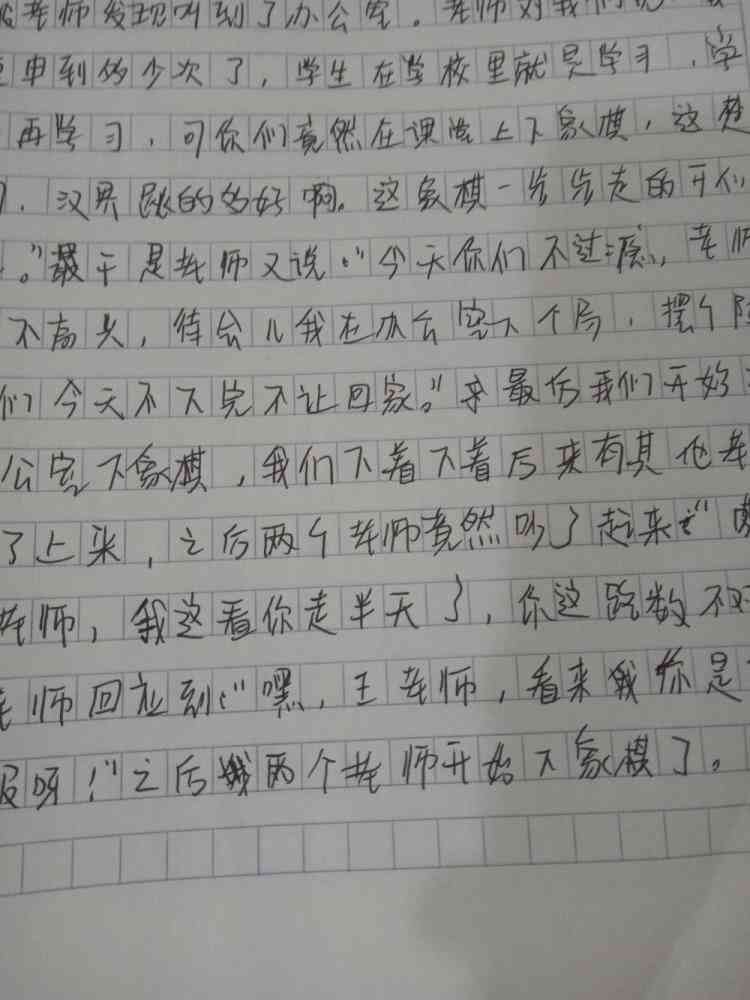 老师发现叫到了办公室。老师对我们说
申到多少次了，学生在学校里就是学习，学
再学习，可你们竟然在课堂上下象棋，这楚
汉界跳的多好啊。这象棋一步步走的开们
。”于是老师又说：“今天你们不过瘾，老师
不高兴，待会儿我在办公室下个局，摆个
们今天不下完不让回家。”最后我们开始
公室下象棋，我们下着下着后来有其他老
了上来，之后两个老师竟然吵了起来：“
老师，我这看你走半天了，你这跑数不对
老师回应到：“嘿，王老师，看来你是
呀！”之后两个老师开始下象棋了。